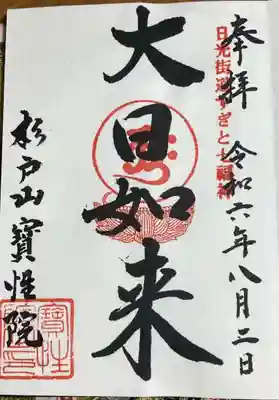 奉拝 令和六年八月二日
日光街道すぎと七福神
大日如来
杉戸山 寶性院
寶性院印